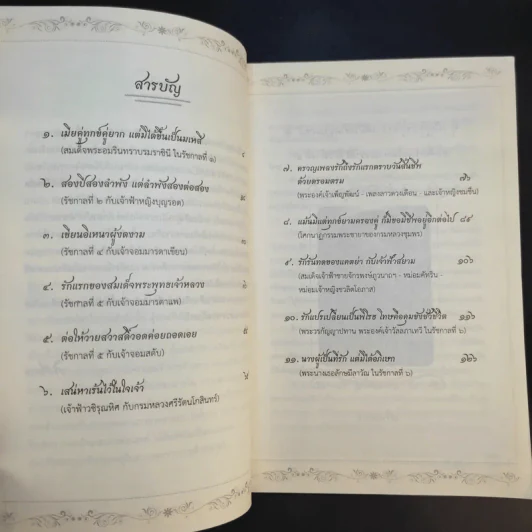 สารบัญ
๑. เมียคู่ทุกข์คู่ยาก แต่มิได้ขึ้นเป็นมเหสี
(สมเด็จพระอมรินทราบรมราชินี ในรัชกาลที่ ๑)
๒. สองปีสองลำพัง แต่ลำพังสองต่อสอง
(รัชกาลที่ ๒ กับเจ้าฟ้าหญิงบุญรอด)
๓. เขียนอิเหนาผู้งดงาม
(รัชกาลที่ ๔ กับเจ้าจอมมารดาเขียน)
๔. รักแรกของสมเด็จพระพุทธเจ้าหลวง
(รัชกาลที่ ๕ กับเจ้าจอมมารดาแพ)
๕. ต่อให้วายสวาสดิ์วอดค่อยถอดเอย
(รัชกาลที่ ๕ กับเจ้าจอมสดับ)
๖. เสน่หาเร้นไว้ในใจเจ้า
(เจ้าฟ้าวชิรุณหิศ กับกรมหลวงศรีรัตนโกสินทร์)
๗. ครวญเพลงรักถึงรักแรกตราบวันสิ้นชีพ ๗๖
ด้วยตรอมตรม
(พระองค์เจ้าเพ็ญพัฒน์ - เพลงลาวดวงเดือน - และเจ้าหญิงชมชื่น)
๘. แม้นมีแต่ทุกข์ยามครองคู่ ก็มิขอมีชีพอยู่อีกต่อไป ๘๙
(โศกนาฏกรรมพระชายาของกรมหลวงชุมพร)
๙. รักรันทดของแคทยา กับเจ้าฟ้าสยาม ๑๐๖
(สมเด็จเจ้าฟ้าชายจักรพงษ์ภูวนาถฯ - หม่อมคัทริน -
หม่อมเจ้าหญิงชวลิตโอภาส)
๑๐. รักแปรเปลี่ยนเป็นพิโรธ โทษทัณฑ์คุมขังชั่วชีวิต ๑๑๖
(พระวรกัญญาปทาน พระองค์เจ้าวัลลภาเทวี ในรัชกาลที่ ๖)
๑๑. นางผู้เป็นที่รัก แต่มิได้อภิเษก ๑๒๖
(พระนางเธอลักษมีลาวัณ ในรัชกาลที่ ๖)